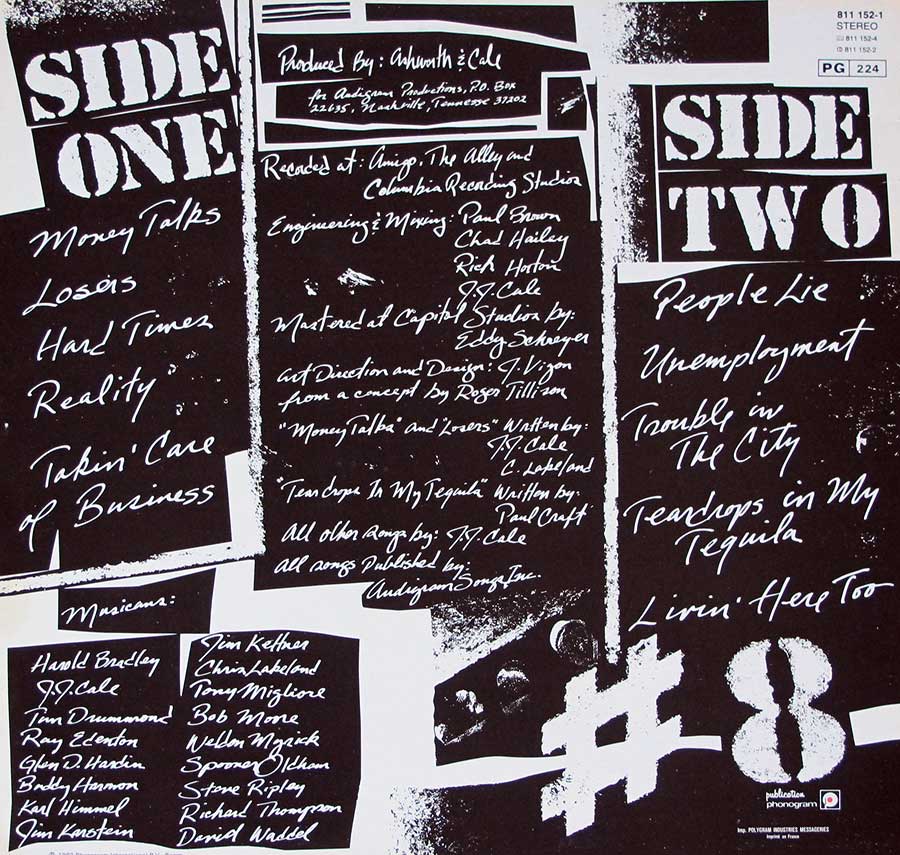 SIDE
ONE
Money Talks
Losers
Hard Times
Reality
Takin' Care
of Business
Produced By: Ashworth & Cale
for Audigram Productions, P.O. Box
22635, Nashville, Tennesse 37202
Recorded at: Amigo, The Alley and
Columbia Recording Studios
Engineering & Mixing: Paul Brown
Chad Hailey
Rick Horton
J.J. Cale
Mastered at Capitol Studios by:
Eddy Schreyer
Art Direction and Design: J. Vigon
from a concept by Roger Tillison
"Money Talks" and "Losers" Written by:
J.J. Cale
C. Lakeland
"Teardrops In My Tequila" Written by:
Paul Craft
All other songs by: J.J. Cale
All songs Published by:
Audigram Songs Inc.
811 152-1
STEREO
811 152-4
811 152-2
PG 224
SIDE
TWO
People Lie
Unemployment
Trouble in
The City
Teardrops in My
Tequila
Livin' Here Too
Musicians:
Harold Bradley
J.J. Cale
Tim Drummond
Ray Edenton
Glen D. Hardin
Buddy Harmon
Karl Himmel
Jim Karstein
Jim Keltner
Chris Lakeland
Tony Migliore
Bob Moore
Weldon Myrick
Spooner Oldham
Steve Ripley
Richard Thompson
David Waddel
#8
publication
phonogram
Imp. POLYGRAM INDUSTRIES MESSAGERIES
Imprimé en France